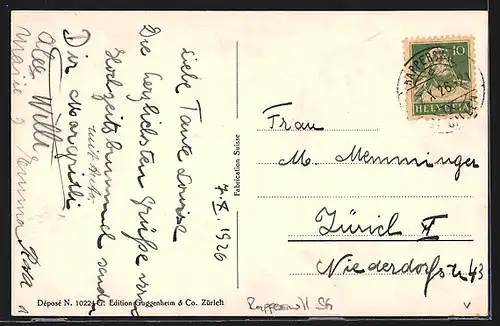 7. X. 1926
Liebe Tante Louise
Die herzlichsten Grüße von
Hochzeitsbummel senden
mit Auto.
Dir Margritli
Willi
Emma Rosa
Fabrication Suisse
10
HELVETIA
Frau
M. Memminger
Zürich
Niederdorfstr 43
Déposé N. 10224 G. Edition Guggenheim & Co. Zürich
Rapperswil SG